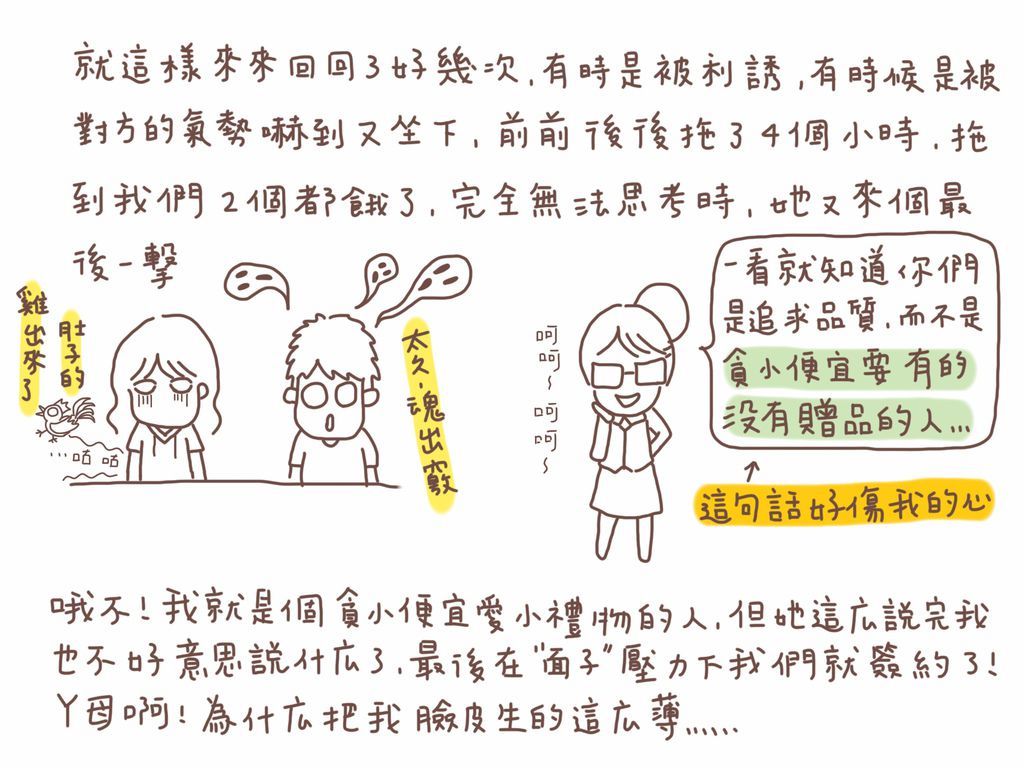 就這樣來來回回了好幾次,有時是被利誘,有時候是被
對方的氣勢嚇到又坐下,前前後後拖了4個小時,拖
到我們2個都餓了,完全無法思考時,她又來個最
後一擊
肚子的
雞出來了
…咕咕
太久,魂出竅
呵呵~呵呵~
一看就知道你們
是追求品質,而不是
貪小便宜要有的
沒有贈品的人...
這句話好傷我的心
哦不!我就是個貪小便宜愛小禮物的人,但她這広說完我
也不好意思說什広了,最後在"面子"壓力下我們就簽約了!
丫母啊!為什広把我臉皮生的這広薄......